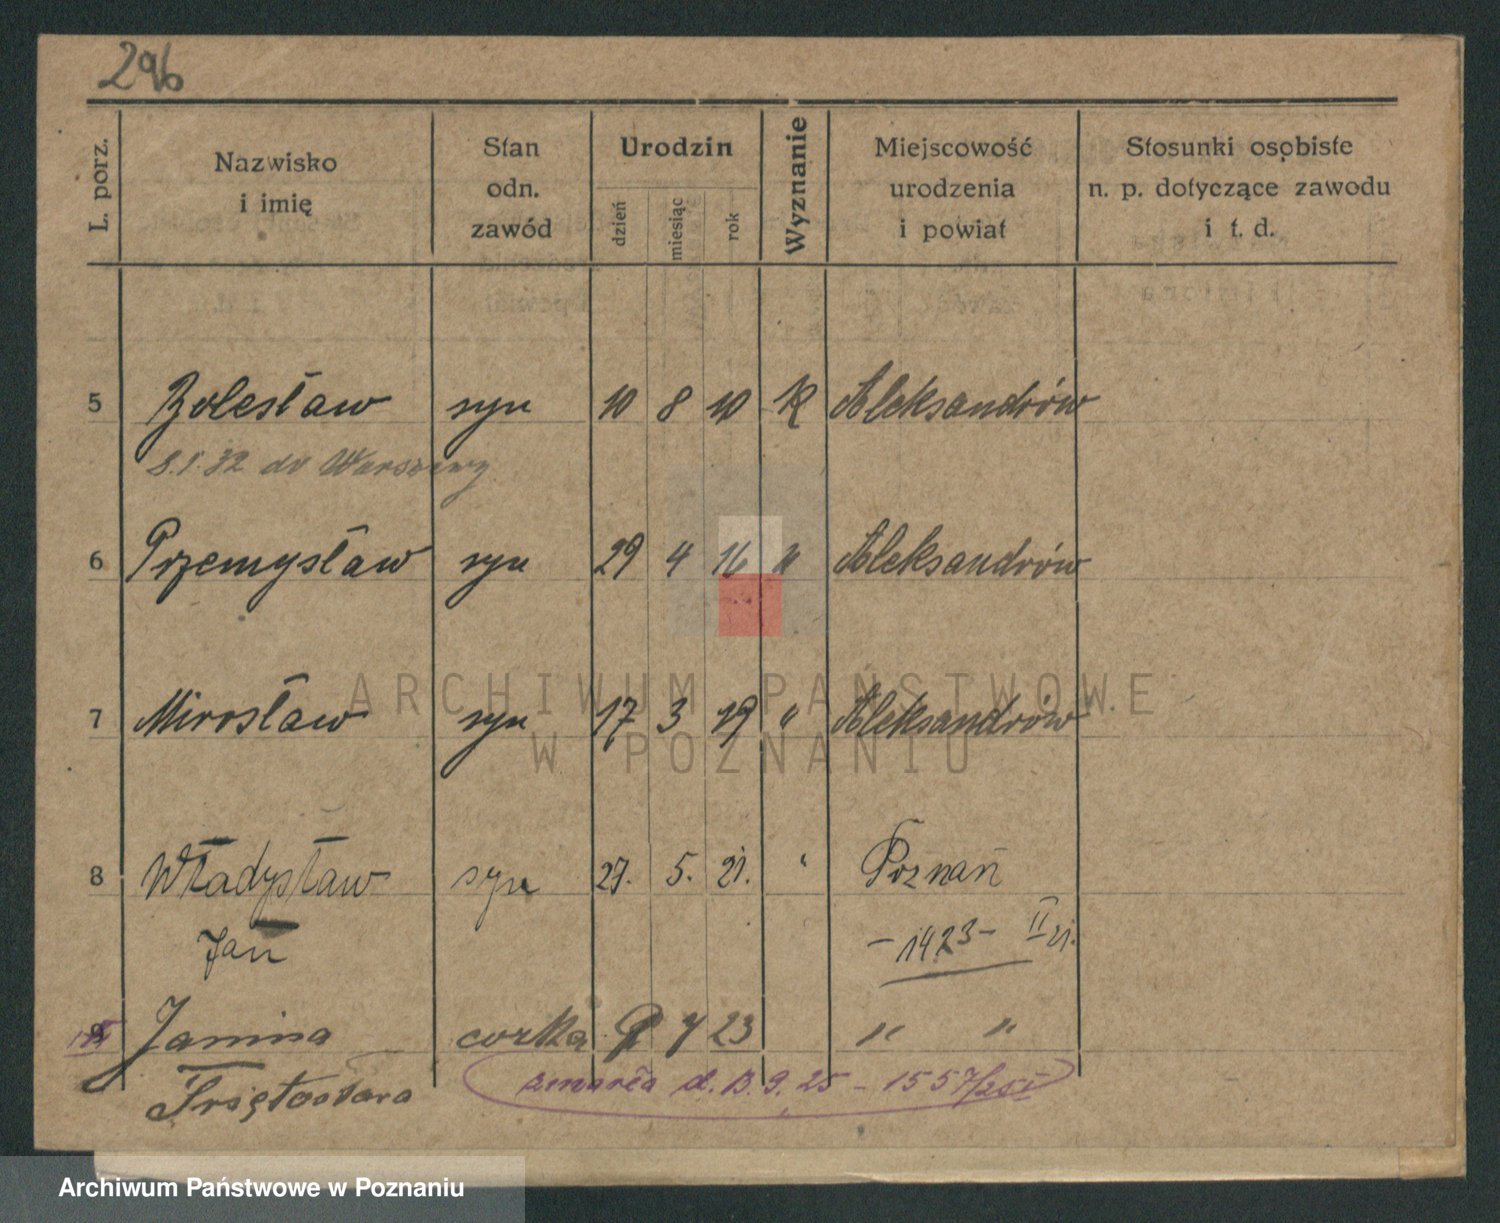 296
L. porz.
Nazwisko
i imię
Stan
odn.
zawód
Urodzin
dzień
miesiąc
rok
Wyznanie
Miejscowość
urodzenia
i powiat
Stosunki osobiste
n. p. dotyczące zawodu
i t. d.
5 Bolesław syn 10 8 10 K Aleksandrów
8.1.32 do Warszawy
6 Przemysław syn 29 4 16 " Aleksandrów
ARCHIWUM PAŃSTWOWE
7 Mirosław syn 17 3 19 " Aleksandrów
W POZNANIU
8 Władysław syn 27. 5. 21. " Poznań
Jan - 1423 - II 21.
9 Janina corka 7 23 " "
zmarła d. 13.9.25 - 1557/25 I
Archiwum Państwowe w Poznaniu